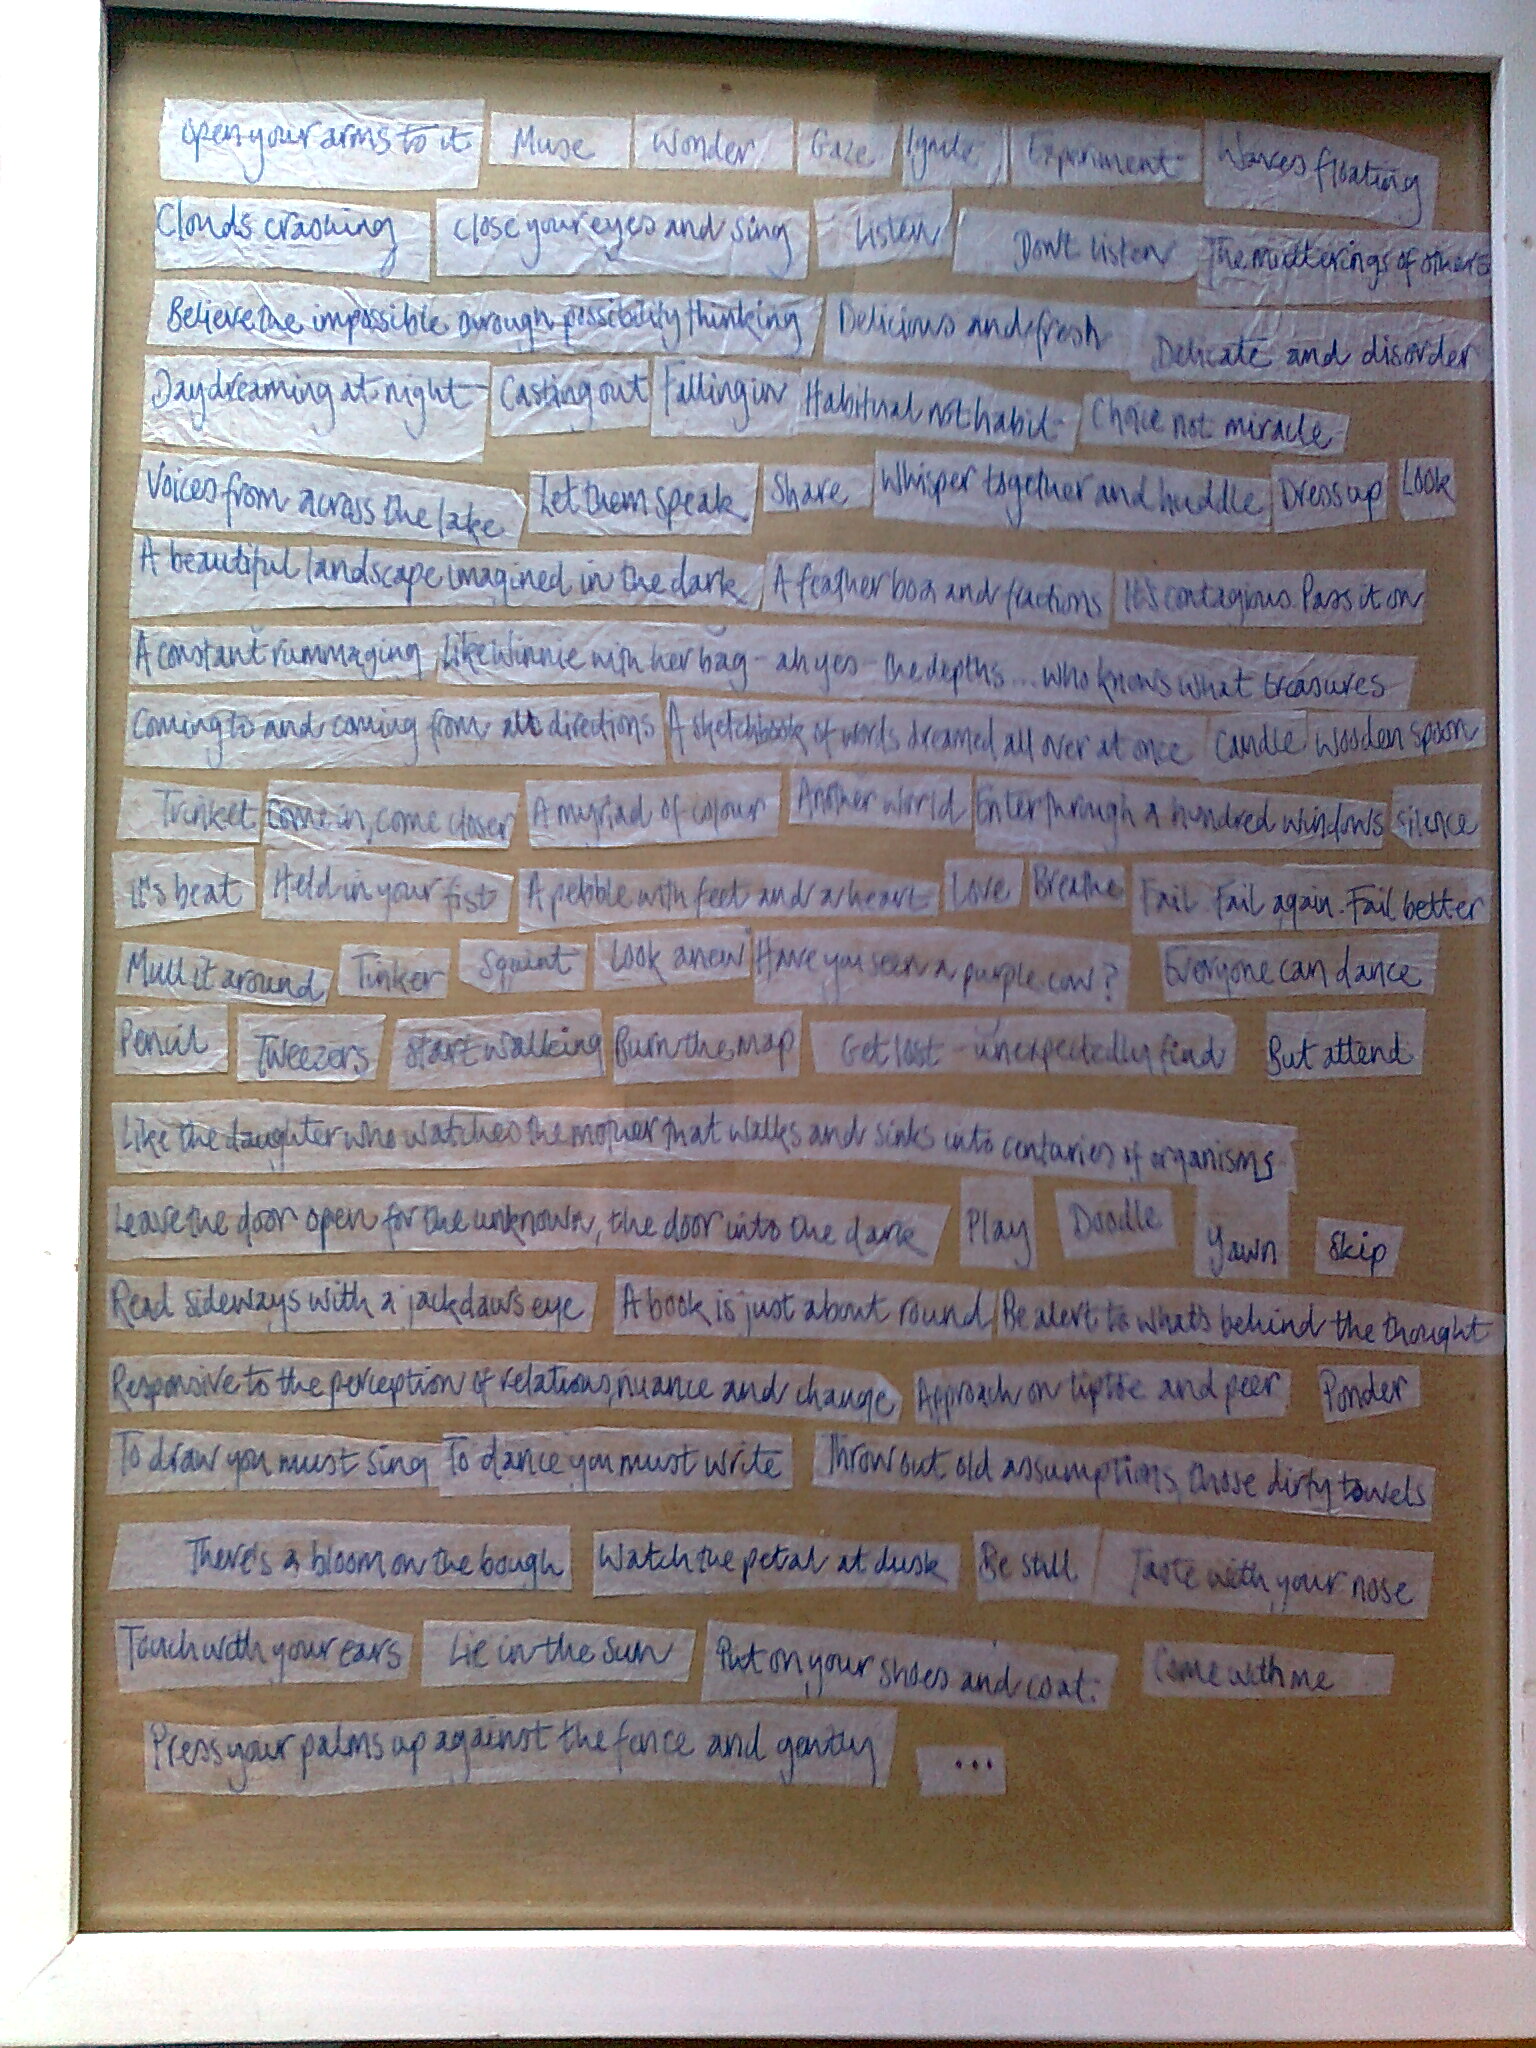 Open your arms to it Muse Wonder Gaze Ignite Experiment Waves floating
Clouds crashing Close your eyes and sing Listen Don't listen The mutterings of others
Believe the impossible through possibility thinking Delicious and fresh Delicate and disorder
Daydreaming at night Casting out Falling in Habitual not habit Choice not miracle
Voices from across the lake Let them speak Share Whisper together and huddle Dress up Look
A beautiful landscape imagined in the dark A feather boa and fractions It's contagious. Pass it on
A constant rummaging Like Winnie with her bag - ah yes - the depths... who knows what treasures
Coming to and coming from all directions A sketchbook of words dreamed all over at once Candle Wooden spoon
Trinket Come in, come closer A myriad of colour Another world Enter through a hundred windows Silence
It's beat Held in your fist A pebble with feet and a heart Love Breathe Fail. Fail again. Fail better
Mull it around Tinker Squint Look anew Have you seen a purple cow? Everyone can dance
Pencil Tweezers Start walking Burn the map Get lost - unexpectedly find But attend
Like the daughter who watches the mother that walks and sinks into centuries of organisms
Leave the door open for the unknown, the door into the dark Play Doodle Yawn Skip
Read sideways with a jackdaw's eye A book is just about round Be alert to what's behind the thought
Responsive to the perception of relations, nuance and change Approach on tiptoe and peer Ponder
To draw you must sing To dance you must write Throw out old assumptions, those dirty towels
There's a bloom on the bough Watch the petal at dusk Be still Taste with your nose
Touch with your ears Lie in the sun Put on your shoes and coat. Come with me
Press your palms up against the fence and gently ...